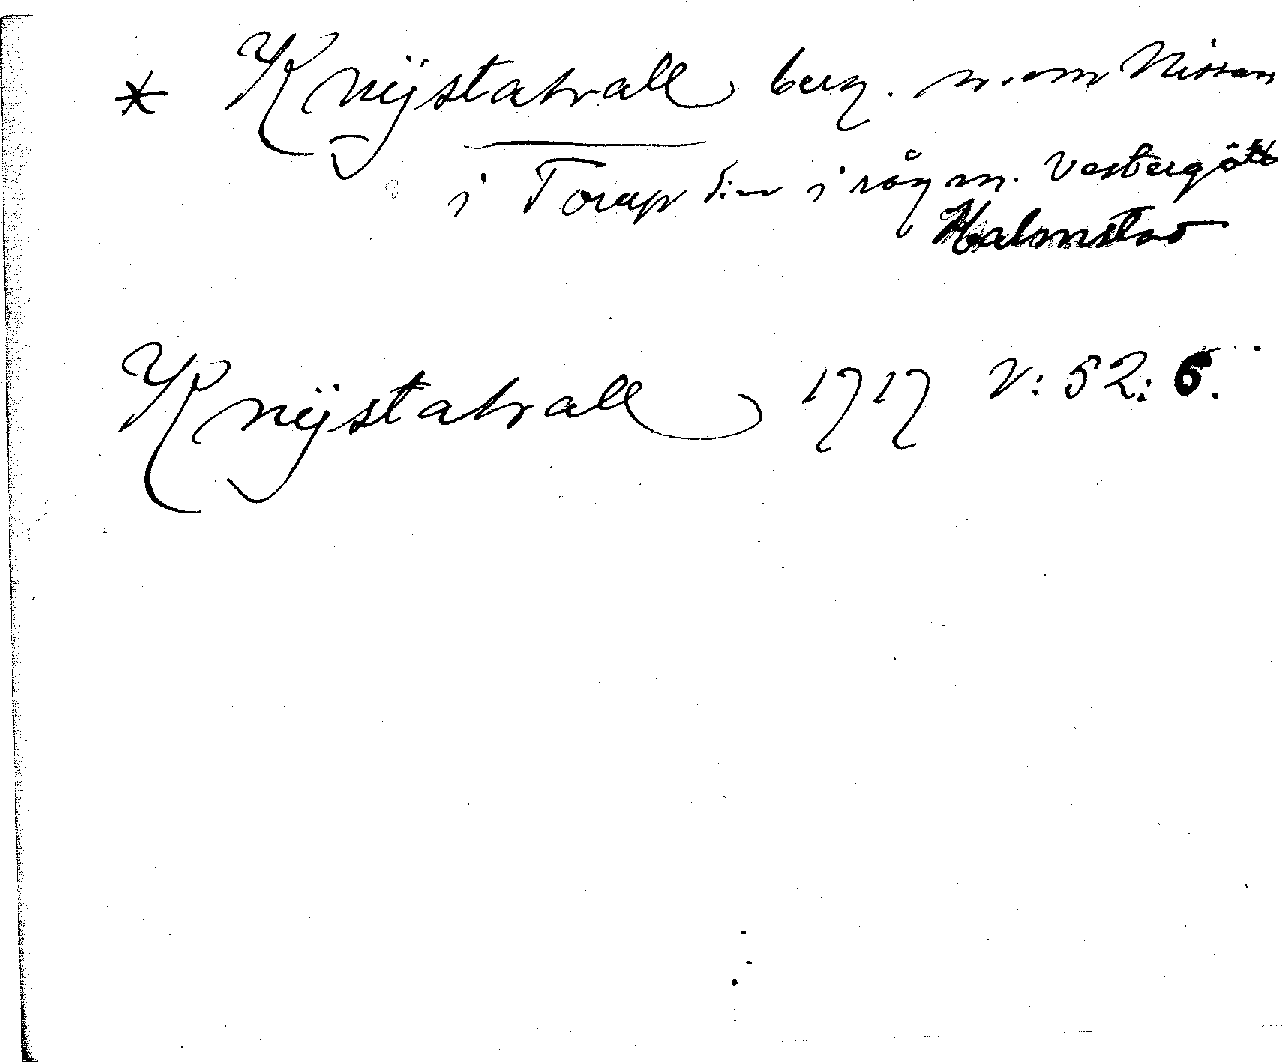 * Knÿstahall berg. n. om Nissan
i Torup s:n i råg m. Vestergötl
Halmstad
Knÿstahall 1717 V: 52: 6.